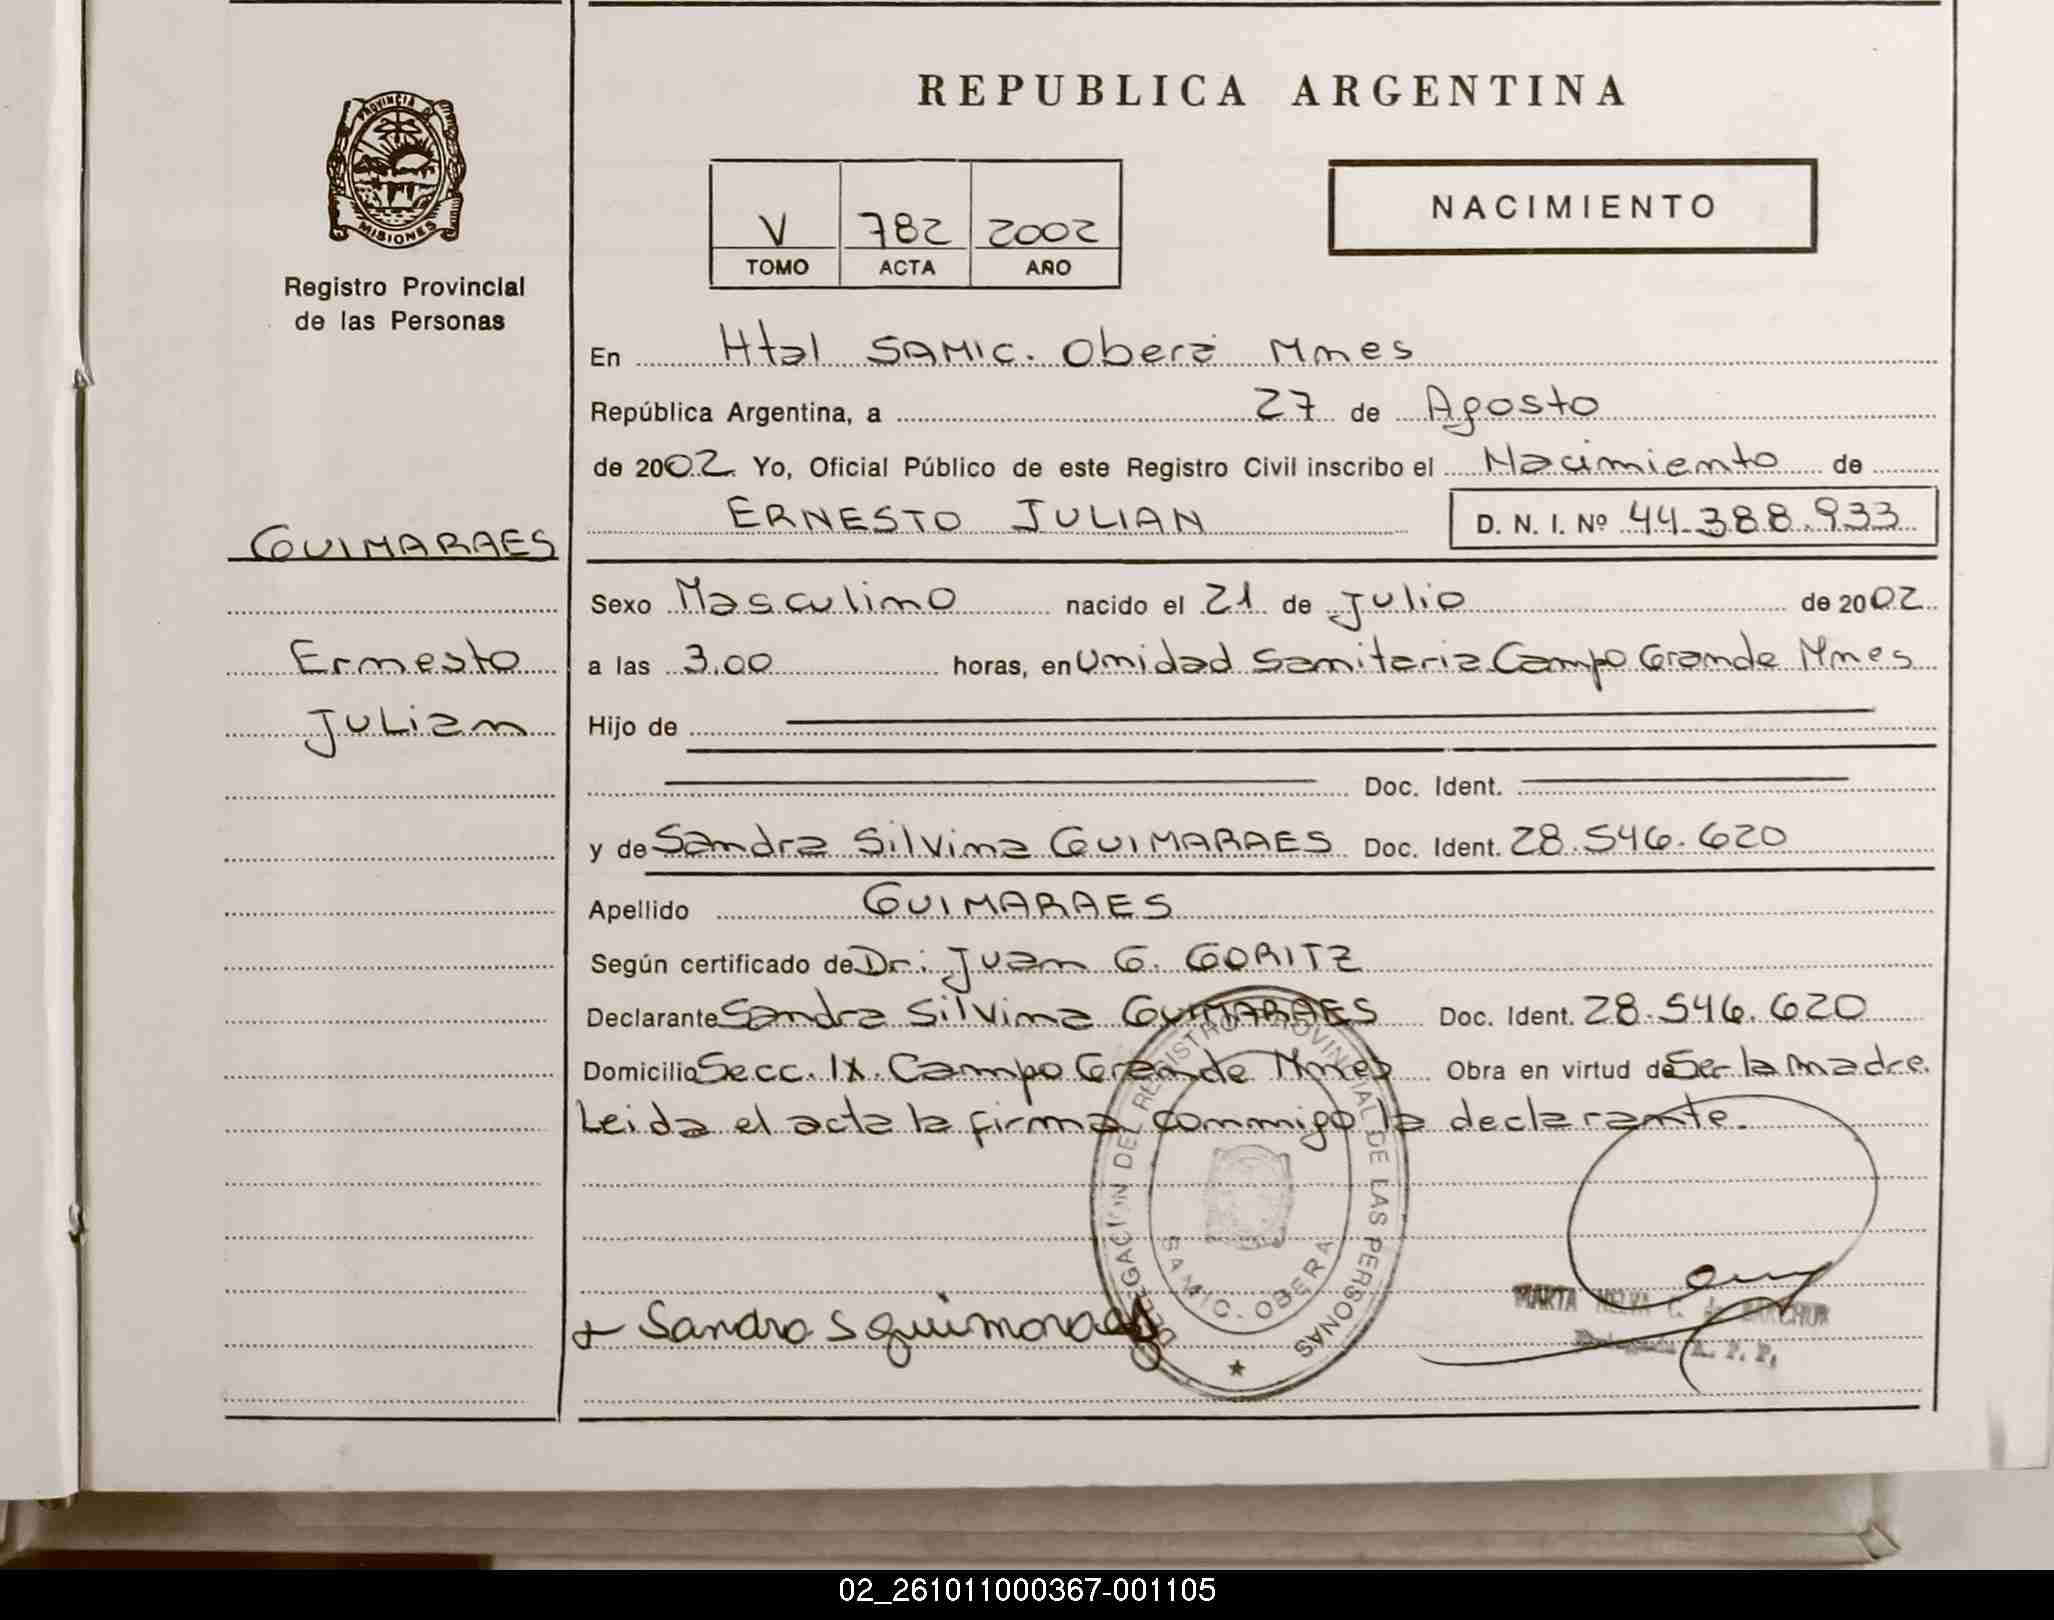 REPUBLICA ARGENTINA
PROVINCIA DE
MISIONES
Registro Provincial
de las Personas
V 782 2002
TOMO ACTA AÑO
NACIMIENTO
En Htal SAMIC. Oberá Mnes
República Argentina, a 27 de Agosto
de 2002 Yo, Oficial Público de este Registro Civil inscribo el Nacimiento de
ERNESTO JULIAN D. N. I. Nº 44.388.933
GUIMARAES
Ernesto
Julian
Sexo Masculino nacido el 21 de Julio de 2002
a las 3.00 horas, en Unidad Sanitaria Campo Grande Mnes
Hijo de
Doc. Ident.
y de Sandra Silvina GUIMARAES Doc. Ident. 28.546.620
Apellido GUIMARAES
Según certificado de Dr. Juan G. GORITZ
Declarante Sandra Silvina GUIMARAES Doc. Ident. 28.546.620
Domicilio Secc. IX. Campo Grande Mnes Obra en virtud de Ser la madre.
Leida el acta la firma conmigo la declarante.
DELEGACION DE REGISTRO PROVINCIAL DE LAS PERSONAS
SAMIC. OBERA
Sandra S guimaraes
MARTA C. de
R. P. P.
02_261011000367-001105